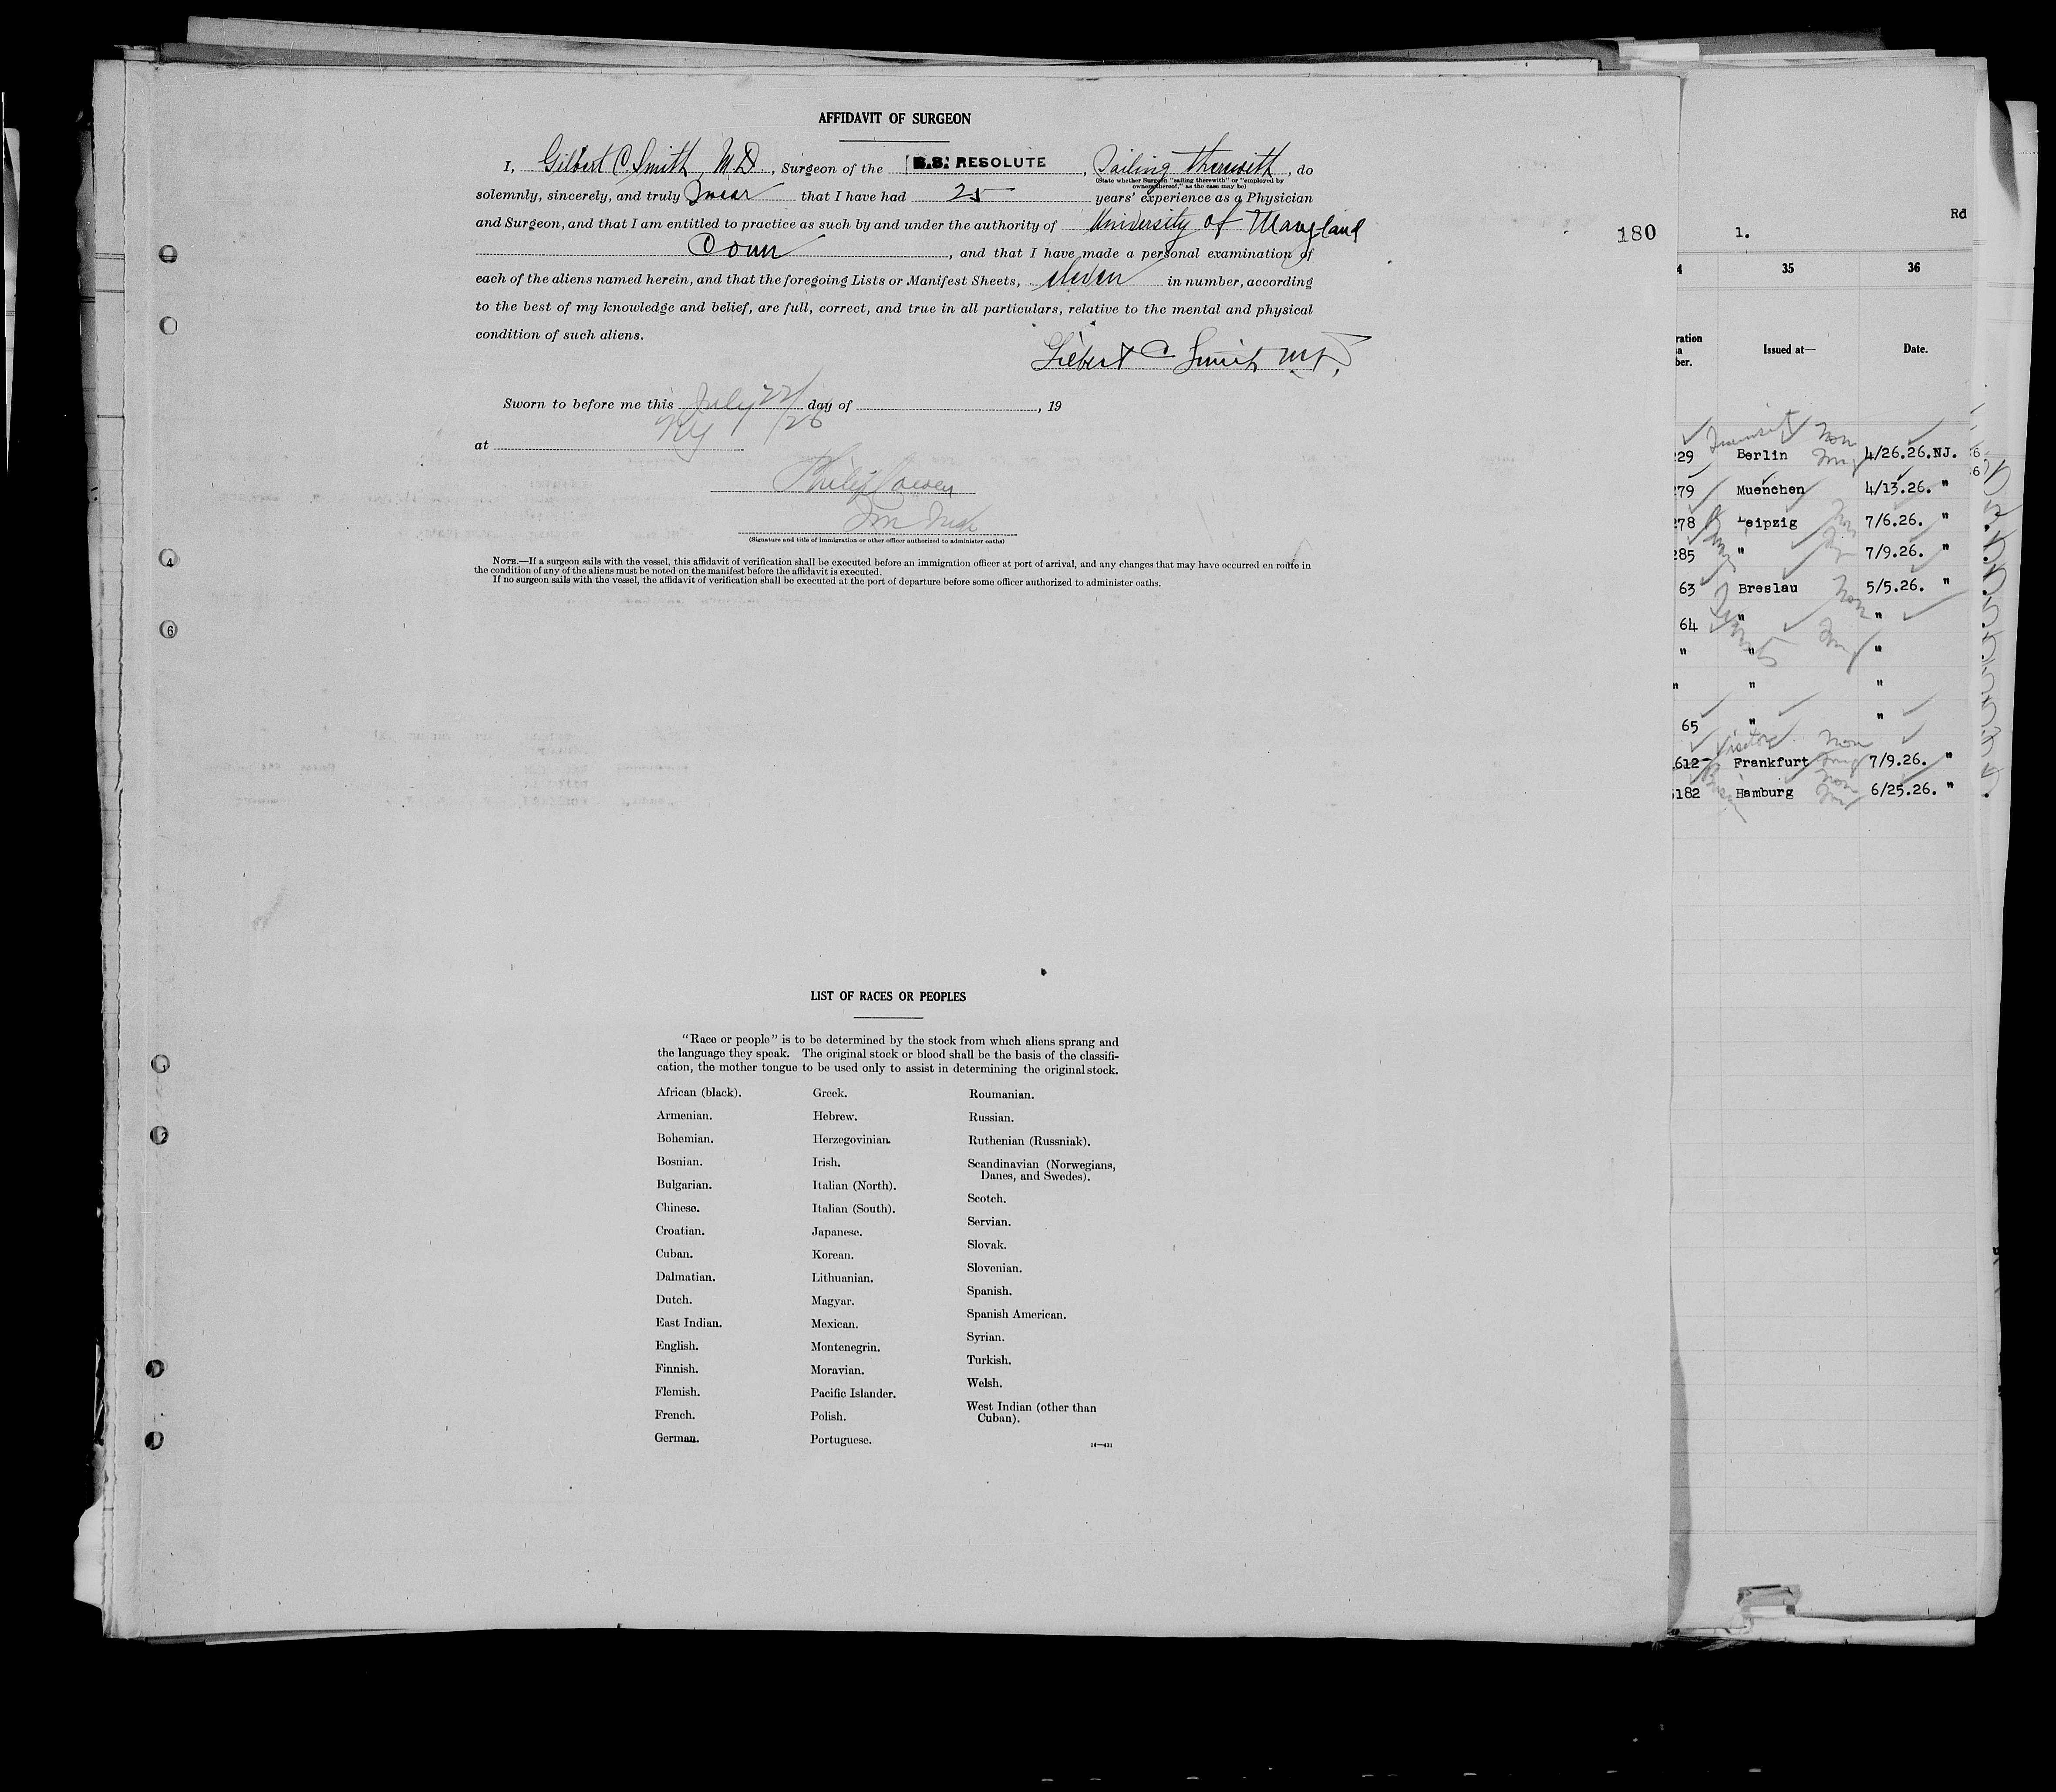 AFFIDAVIT OF SURGEON
I, Gilbert C. Smith, M.D., Surgeon of the S.S. RESOLUTE, Sailing therewith, do
(State whether Surgeon "sailing therewith" or "employed by owners thereof," as the case may be)
solemnly, sincerely, and truly swear that I have had 25 years' experience as a Physician
and Surgeon, and that I am entitled to practice as such by and under the authority of University of Maryland
Conn, and that I have made a personal examination of
each of the aliens named herein, and that the foregoing Lists or Manifest Sheets, in number, according
to the best of my knowledge and belief, are full, correct, and true in all particulars, relative to the mental and physical
condition of such aliens.
Gilbert C Smith M.D.
Sworn to before me this July 22/26 day of , 19
at NY
Philip Cowen
(Signature and title of immigration or other officer authorized to administer oaths)
NOTE.—If a surgeon sails with the vessel, this affidavit of verification shall be executed before an immigration officer at port of arrival, and any changes that may have occurred en route in
the condition of any of the aliens must be noted on the manifest before the affidavit is executed.
If no surgeon sails with the vessel, the affidavit of verification shall be executed at the port of departure before some officer authorized to administer oaths.
LIST OF RACES OR PEOPLES
"Race or people" is to be determined by the stock from which aliens sprang and
the language they speak. The original stock or blood shall be the basis of the classifi-
cation, the mother tongue to be used only to assist in determining the original stock.
African (black).
Armenian.
Bohemian.
Bosnian.
Bulgarian.
Chinese.
Croatian.
Cuban.
Dalmatian.
Dutch.
East Indian.
English.
Finnish.
Flemish.
French.
German.
Greek.
Hebrew.
Herzegovinian.
Irish.
Italian (North).
Italian (South).
Japanese.
Korean.
Lithuanian.
Magyar.
Mexican.
Montenegrin.
Moravian.
Pacific Islander.
Polish.
Portuguese.
Roumanian.
Russian.
Ruthenian (Russniak).
Scandinavian (Norwegians,
Danes, and Swedes).
Scotch.
Servian.
Slovak.
Slovenian.
Spanish.
Spanish American.
Syrian.
Turkish.
Welsh.
West Indian (other than
Cuban).
14—431
180
1.
Rd
4 35 36
Issued at— Date.
Transit Non
29 Berlin Imm 4/26.26.NJ.
79 Muenchen 4/13.26. "
278 Leipzig 7/6.26. "
285 " 7/9.26. "
63 Breslau Non 5/5.26. "
64 " "
" " "
" " "
65 " "
Visitor Non
612 Frankfurt 7/9.26. "
182 Hamburg 6/25.26. "